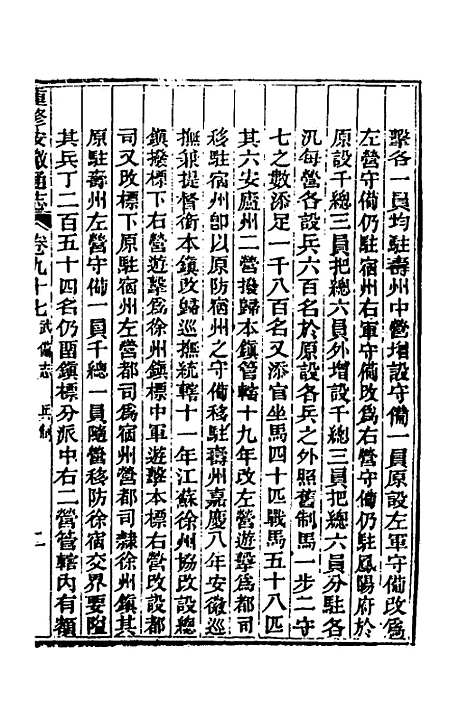 擊各一員均駐壽州中營增設守備一員原設左軍守備改爲
左營守備仍駐宿州右軍守備改爲右營守備仍駐鳳陽府於
原設千總三員把總六員外增設千總三員把總六員分駐各
汛每營各設兵六百名於原設各兵之外照舊制馬一步二守
七之數添足一千八百名又添官坐馬四十匹戰馬五十八匹
其六安廬州二營撥歸本鎮管轄十九年改左營遊擊爲都司
移駐宿州卽以原防宿州之守備移駐壽州嘉慶八年安徽巡
撫兼提督銜本鎮改歸巡撫統轄十一年江蘇徐州協改設總
鎮撥標下右營遊擊爲徐州鎮標中軍遊擊本標右營改設都
司又改標下原駐宿州左營都司爲宿州營都司隸徐州鎮其
原駐壽州左營守備一員千總一員隨營移防徐宿交界要隘
其兵丁二百五十四名仍留鎮標分派中右二營管轄內有額
重修安徽通志 卷九十七 武備志 兵制 二